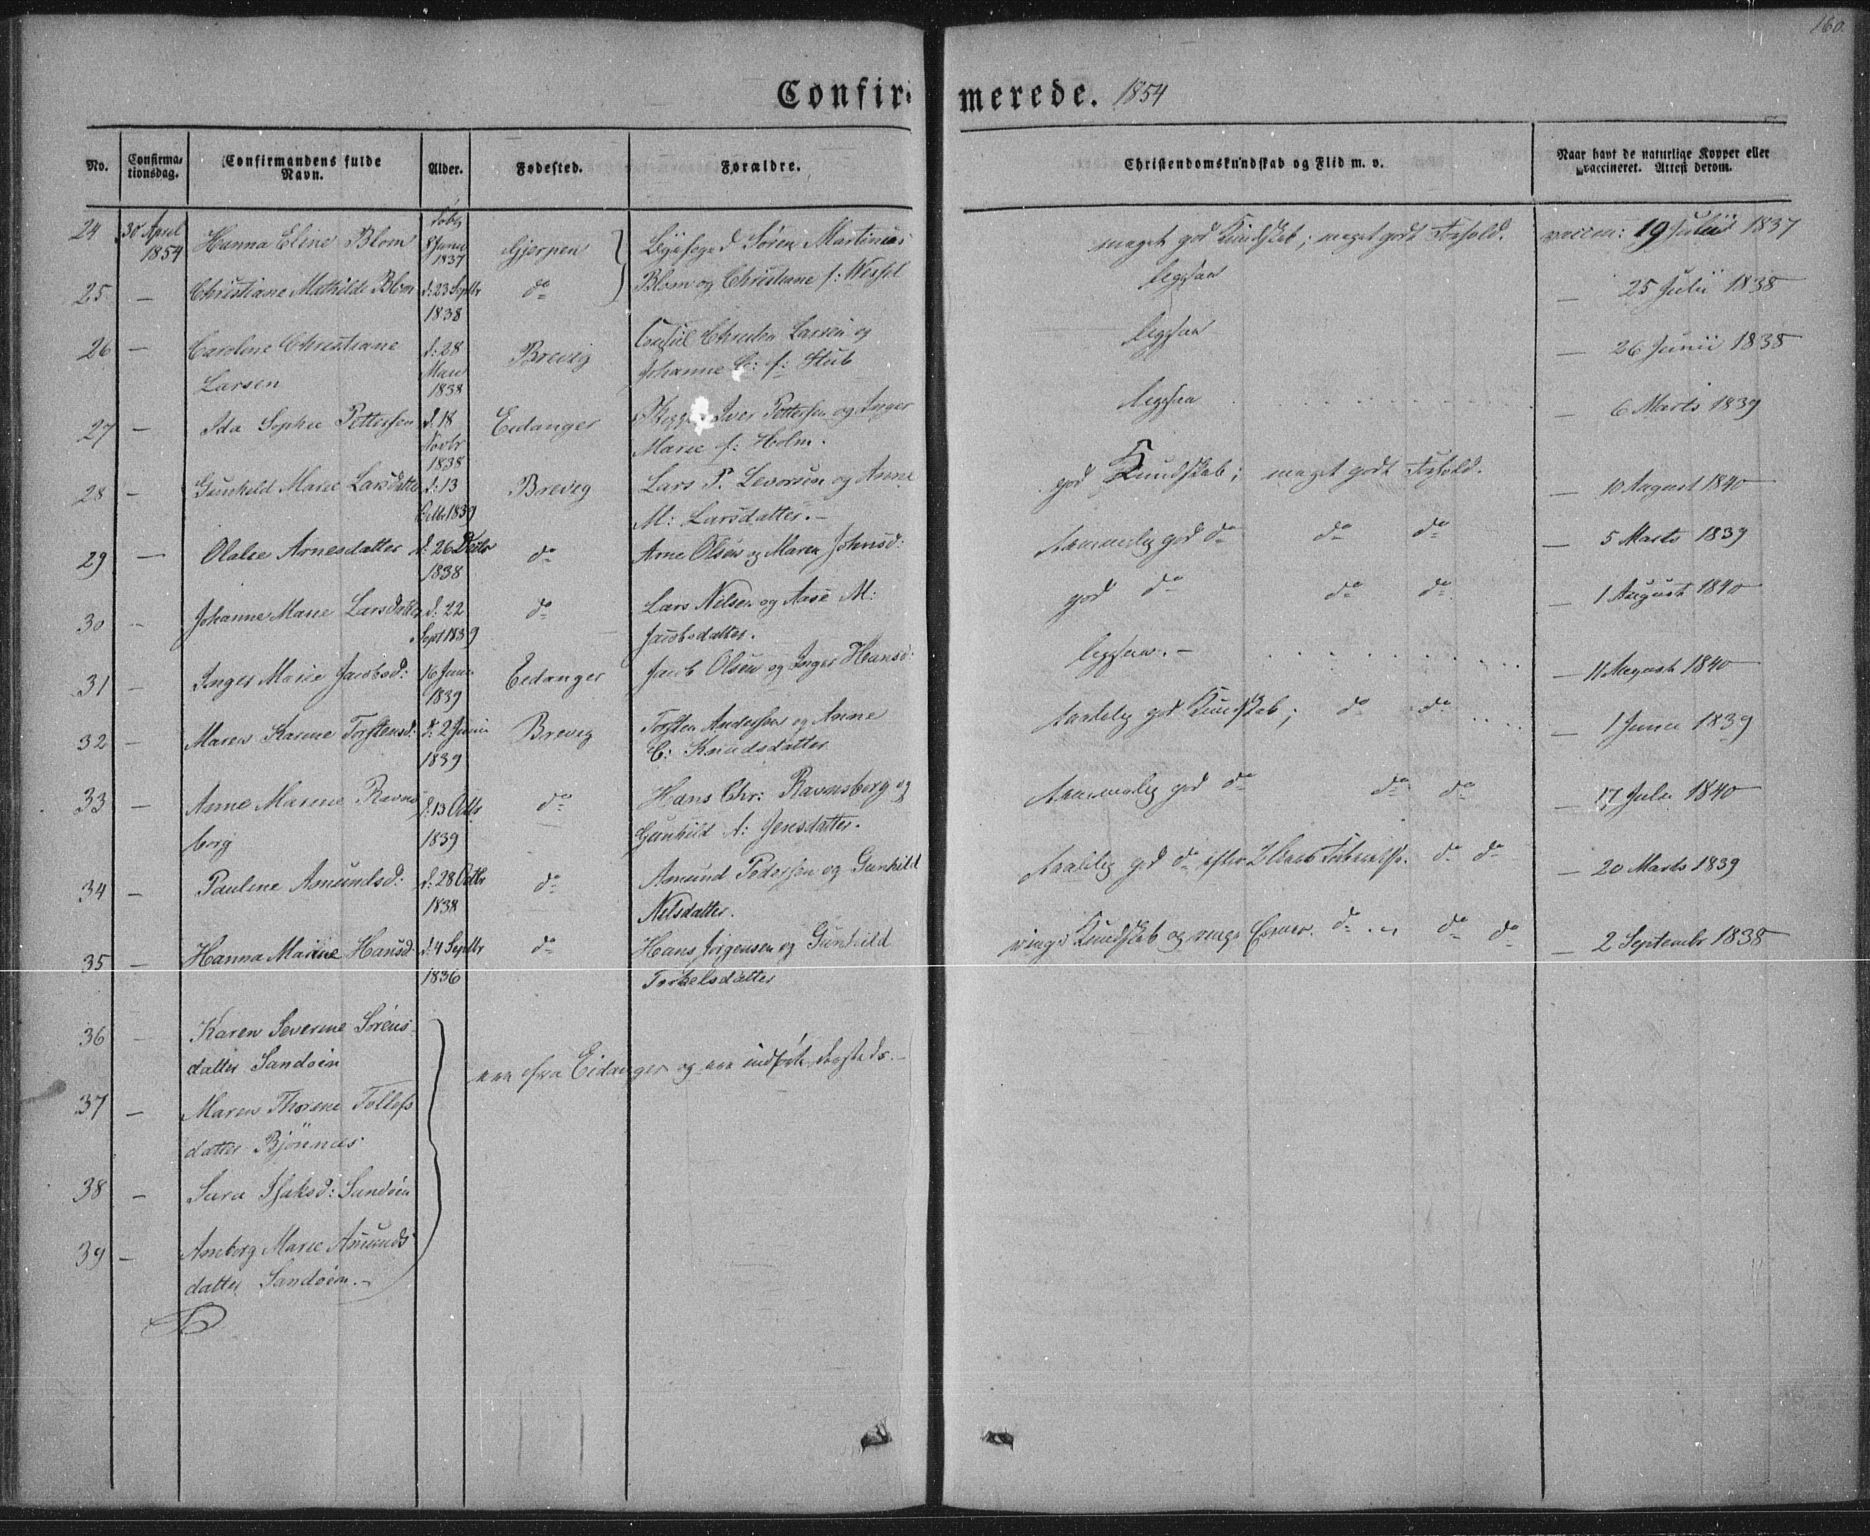 160.
Confirmerede. 1854
No.
Confirmationsdag.
Confirmandens fulde Navn.
Alder.
Fødested.
Forældre.
Christendomskundskab og Flid m. v.
Naar havt de naturlige Kopper eller vaccineret. Attest derom.
24 30 April 1854 Hanna Eline Blom 1837 Gjerpen Søren Martinius meget god Kundskab; meget godt Forhold. vaccin: 19 Julii 1837
25 — Christiane Mathilde Blom d: 23 Septbr 1838 do Blom og Christiane f: Wessel ligesaa — 25 Julii 1838
26 — Carolene Christiane d: 28 Brevig Consul Christen Larsen og ligesaa — 26 Junii 1838
Larsen 1838 Johanne C: f: Stub
27 — Ida Sophie Pettersen d. 18 Eidanger Iver Pettersen og Inger ligesaa — 6 Marts 1839
Novbr 1838 Marie f: Holm.
28 — Gunhild Marie Larsdatter d: 13 Brevig Lars P. Levorsen og Anne god Kundskab; meget godt Forhold. — 10 August 1840
Octbr 1839 M: Larsdatter. —
29 — Olalie Arnesdatter d. 26 do Arne Olsen og Maren Johnsd: temmelig god do do do — 5 Marts 1839
1838
30 — Johanne Marie Larsdatter d: 22 do Lars Nilsen og Aase M: god do do do — 1 August 1840
Sept 1839 Jacobsdatter.
31 — Inger Marie Jacobsd: 16 1839 Eidanger Jacob Olsen og Inger Hansd: ligesaa. — — 11 August 1840
32 — Maren Karine Torstensd: d. 2 Junii Brevig Torsten Andersen og Anne god Kundskab; do do — 1 1839
1839 C: Knudsdatter
33 — Anne Marine Ravns d: 13 Octbr do Hans Chr: Ravnsberg og temmelig god do do do — 17 1840
berg 1839 Gunhild A: Jensdatter.
34 — Pauline Amundsd: d: 28 Octbr do Amund Pedersen og Gunhild god do efter do do — 20 Marts 1839
1838 Nilsdatter.
35 — Hanna Marine Hansd: d. 4 Septbr do Hans Jörgensen og Gunhild ringe Kundskab og ringe Evner. do do do — 2 Septembr 1838
1836 Torkelsdatter
36 — Karen Severine Sörens
datter Sandöen
fra Eidanger og indförte
37 — Maren Thorine Tollefs
datter Bjönnes.
38 — Sara Isaksd: Sandöen
39 — Anneborg Marie Amunds
datter Sandöen. —